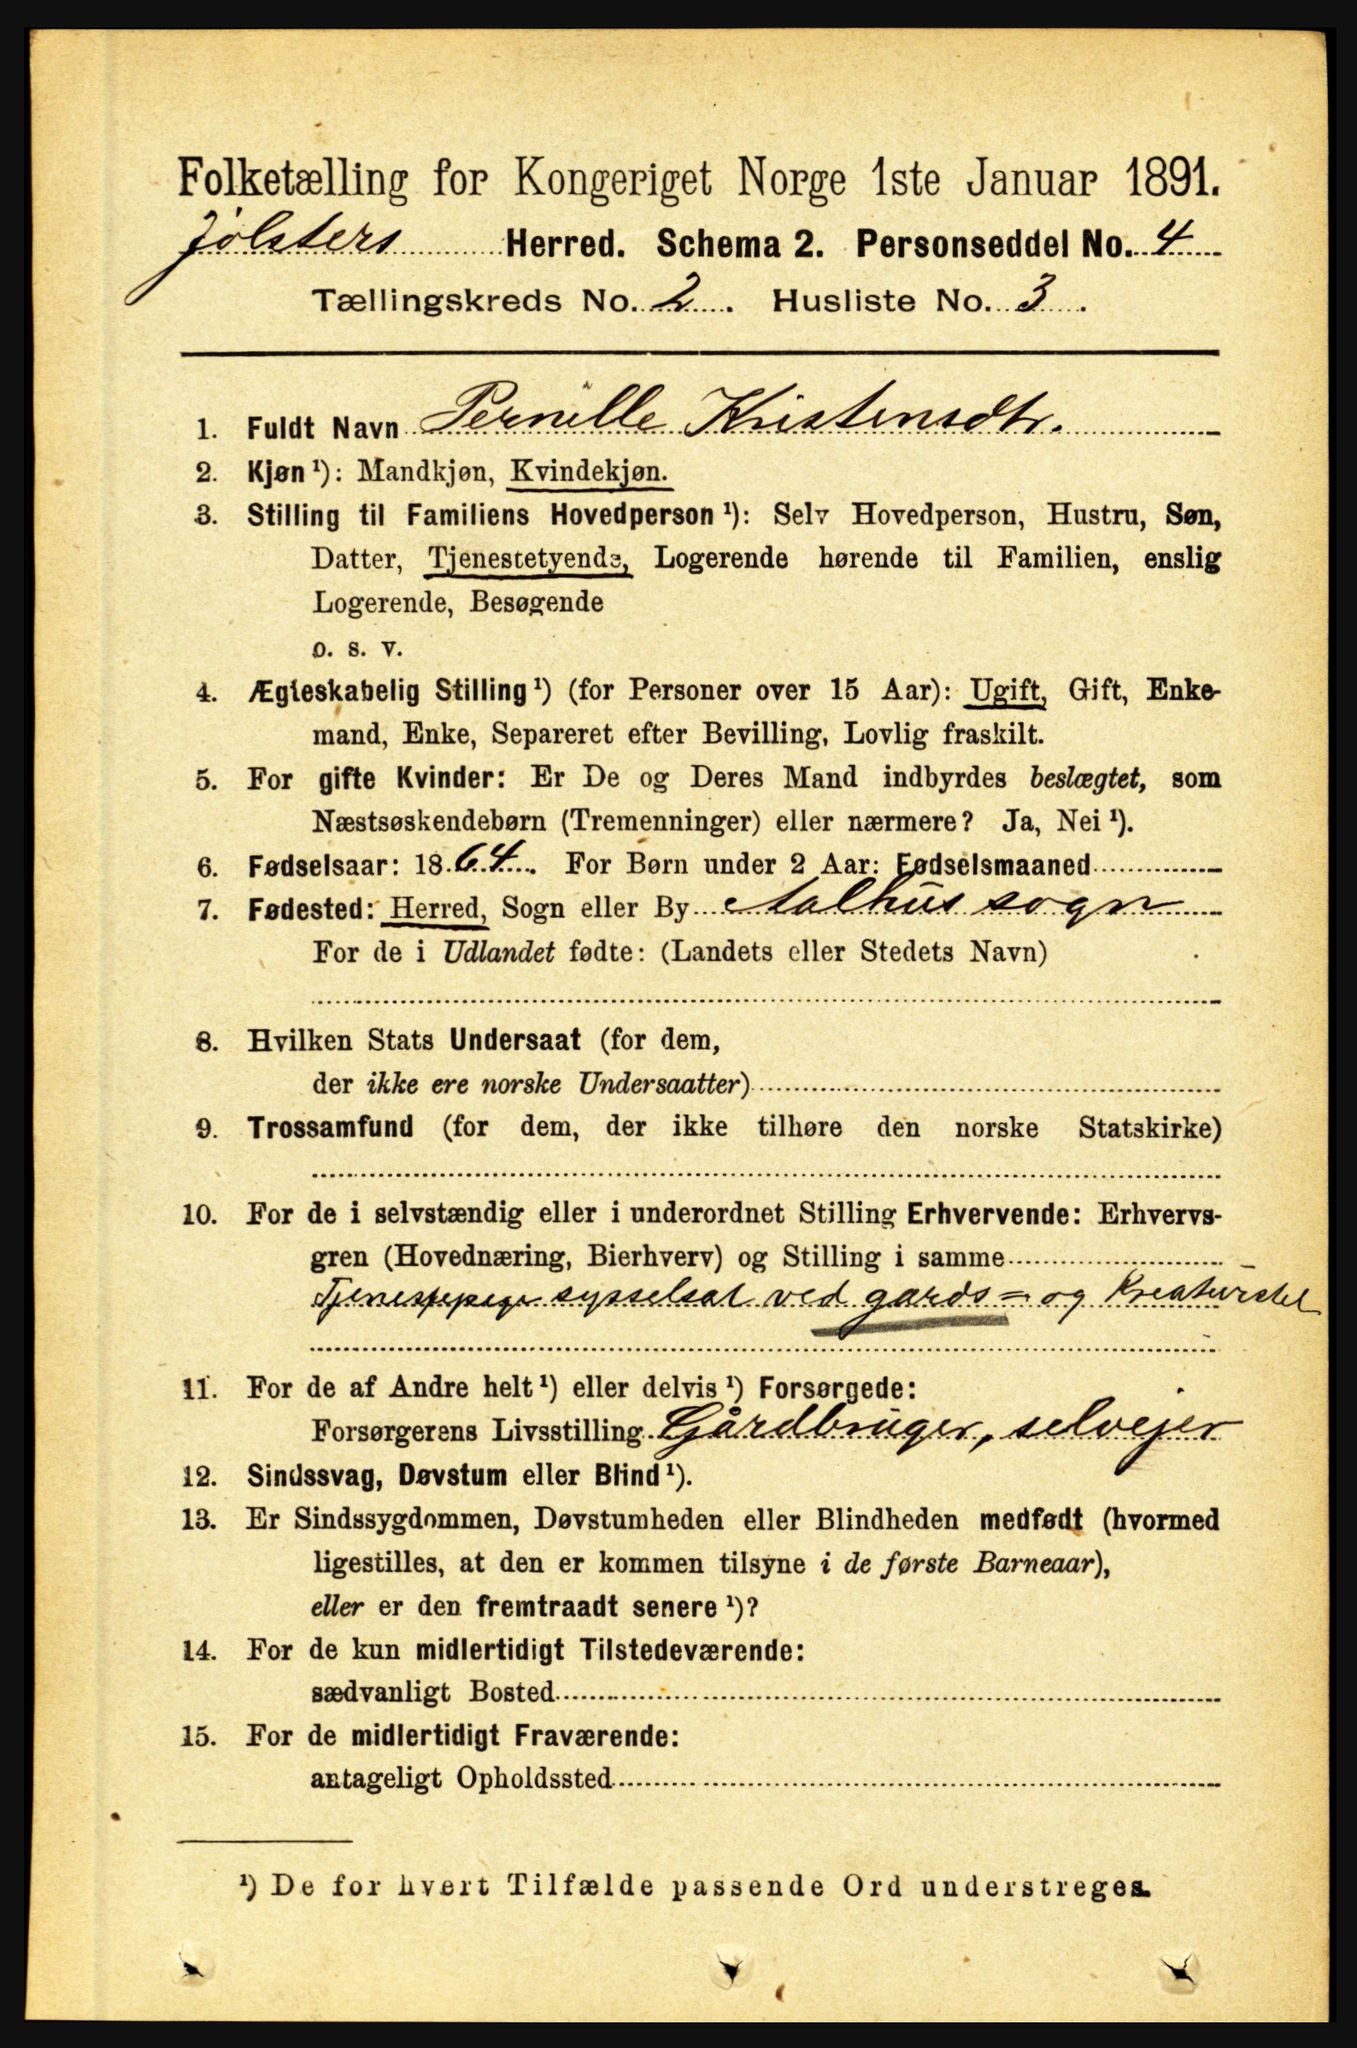 Folketælling for Kongeriget Norge 1ste Januar 1891.
Jølsters Herred. Schema 2. Personseddel No. 4
Tællingskreds No. 2. Husliste No. 3.
1. Fuldt Navn Pernille Kristensdtr.
2. Kjøn ¹): Mandkjøn, Kvindekjøn.
3. Stilling til Familiens Hovedperson ¹): Selv Hovedperson, Hustru, Søn,
Datter, Tjenestetyende, Logerende hørende til Familien, enslig
Logerende, Besøgende
o. s. v.
4. Ægteskabelig Stilling ¹) (for Personer over 15 Aar): Ugift, Gift, Enke-
mand, Enke, Separeret efter Bevilling, Lovlig fraskilt.
5. For gifte Kvinder: Er De og Deres Mand indbyrdes beslægtet, som
Næstsøskendebørn (Tremenninger) eller nærmere? Ja, Nei ¹).
6. Fødselsaar: 1864. For Børn under 2 Aar: Fødselsmaaned
7. Fødested: Herred, Sogn eller By Aalhus sogn
For de i Udlandet fødte: (Landets eller Stedets Navn)
8. Hvilken Stats Undersaat (for dem,
der ikke ere norske Undersaatter)
9. Trossamfund (for dem, der ikke tilhøre den norske Statskirke)
10. For de i selvstændig eller i underordnet Stilling Erhvervende: Erhvervs-
gren (Hovednæring, Bierhverv) og Stilling i samme
Tjenestepige sysselsat ved gards= og Kreaturstel
11. For de af Andre helt ¹) eller delvis ¹) Forsørgede:
Forsørgerens Livsstilling Gårdbruger, selvejer
12. Sindssvag, Døvstum eller Blind ¹).
13. Er Sindssygdommen, Døvstumheden eller Blindheden medfødt (hvormed
ligestilles, at den er kommen tilsyne i de første Barneaar),
eller er den fremtraadt senere ¹)?
14. For de kun midlertidigt Tilstedeværende:
sædvanligt Bosted
15. For de midlertidigt Fraværende:
antageligt Opholdssted
¹) De for hvert Tilfælde passende Ord understreges.